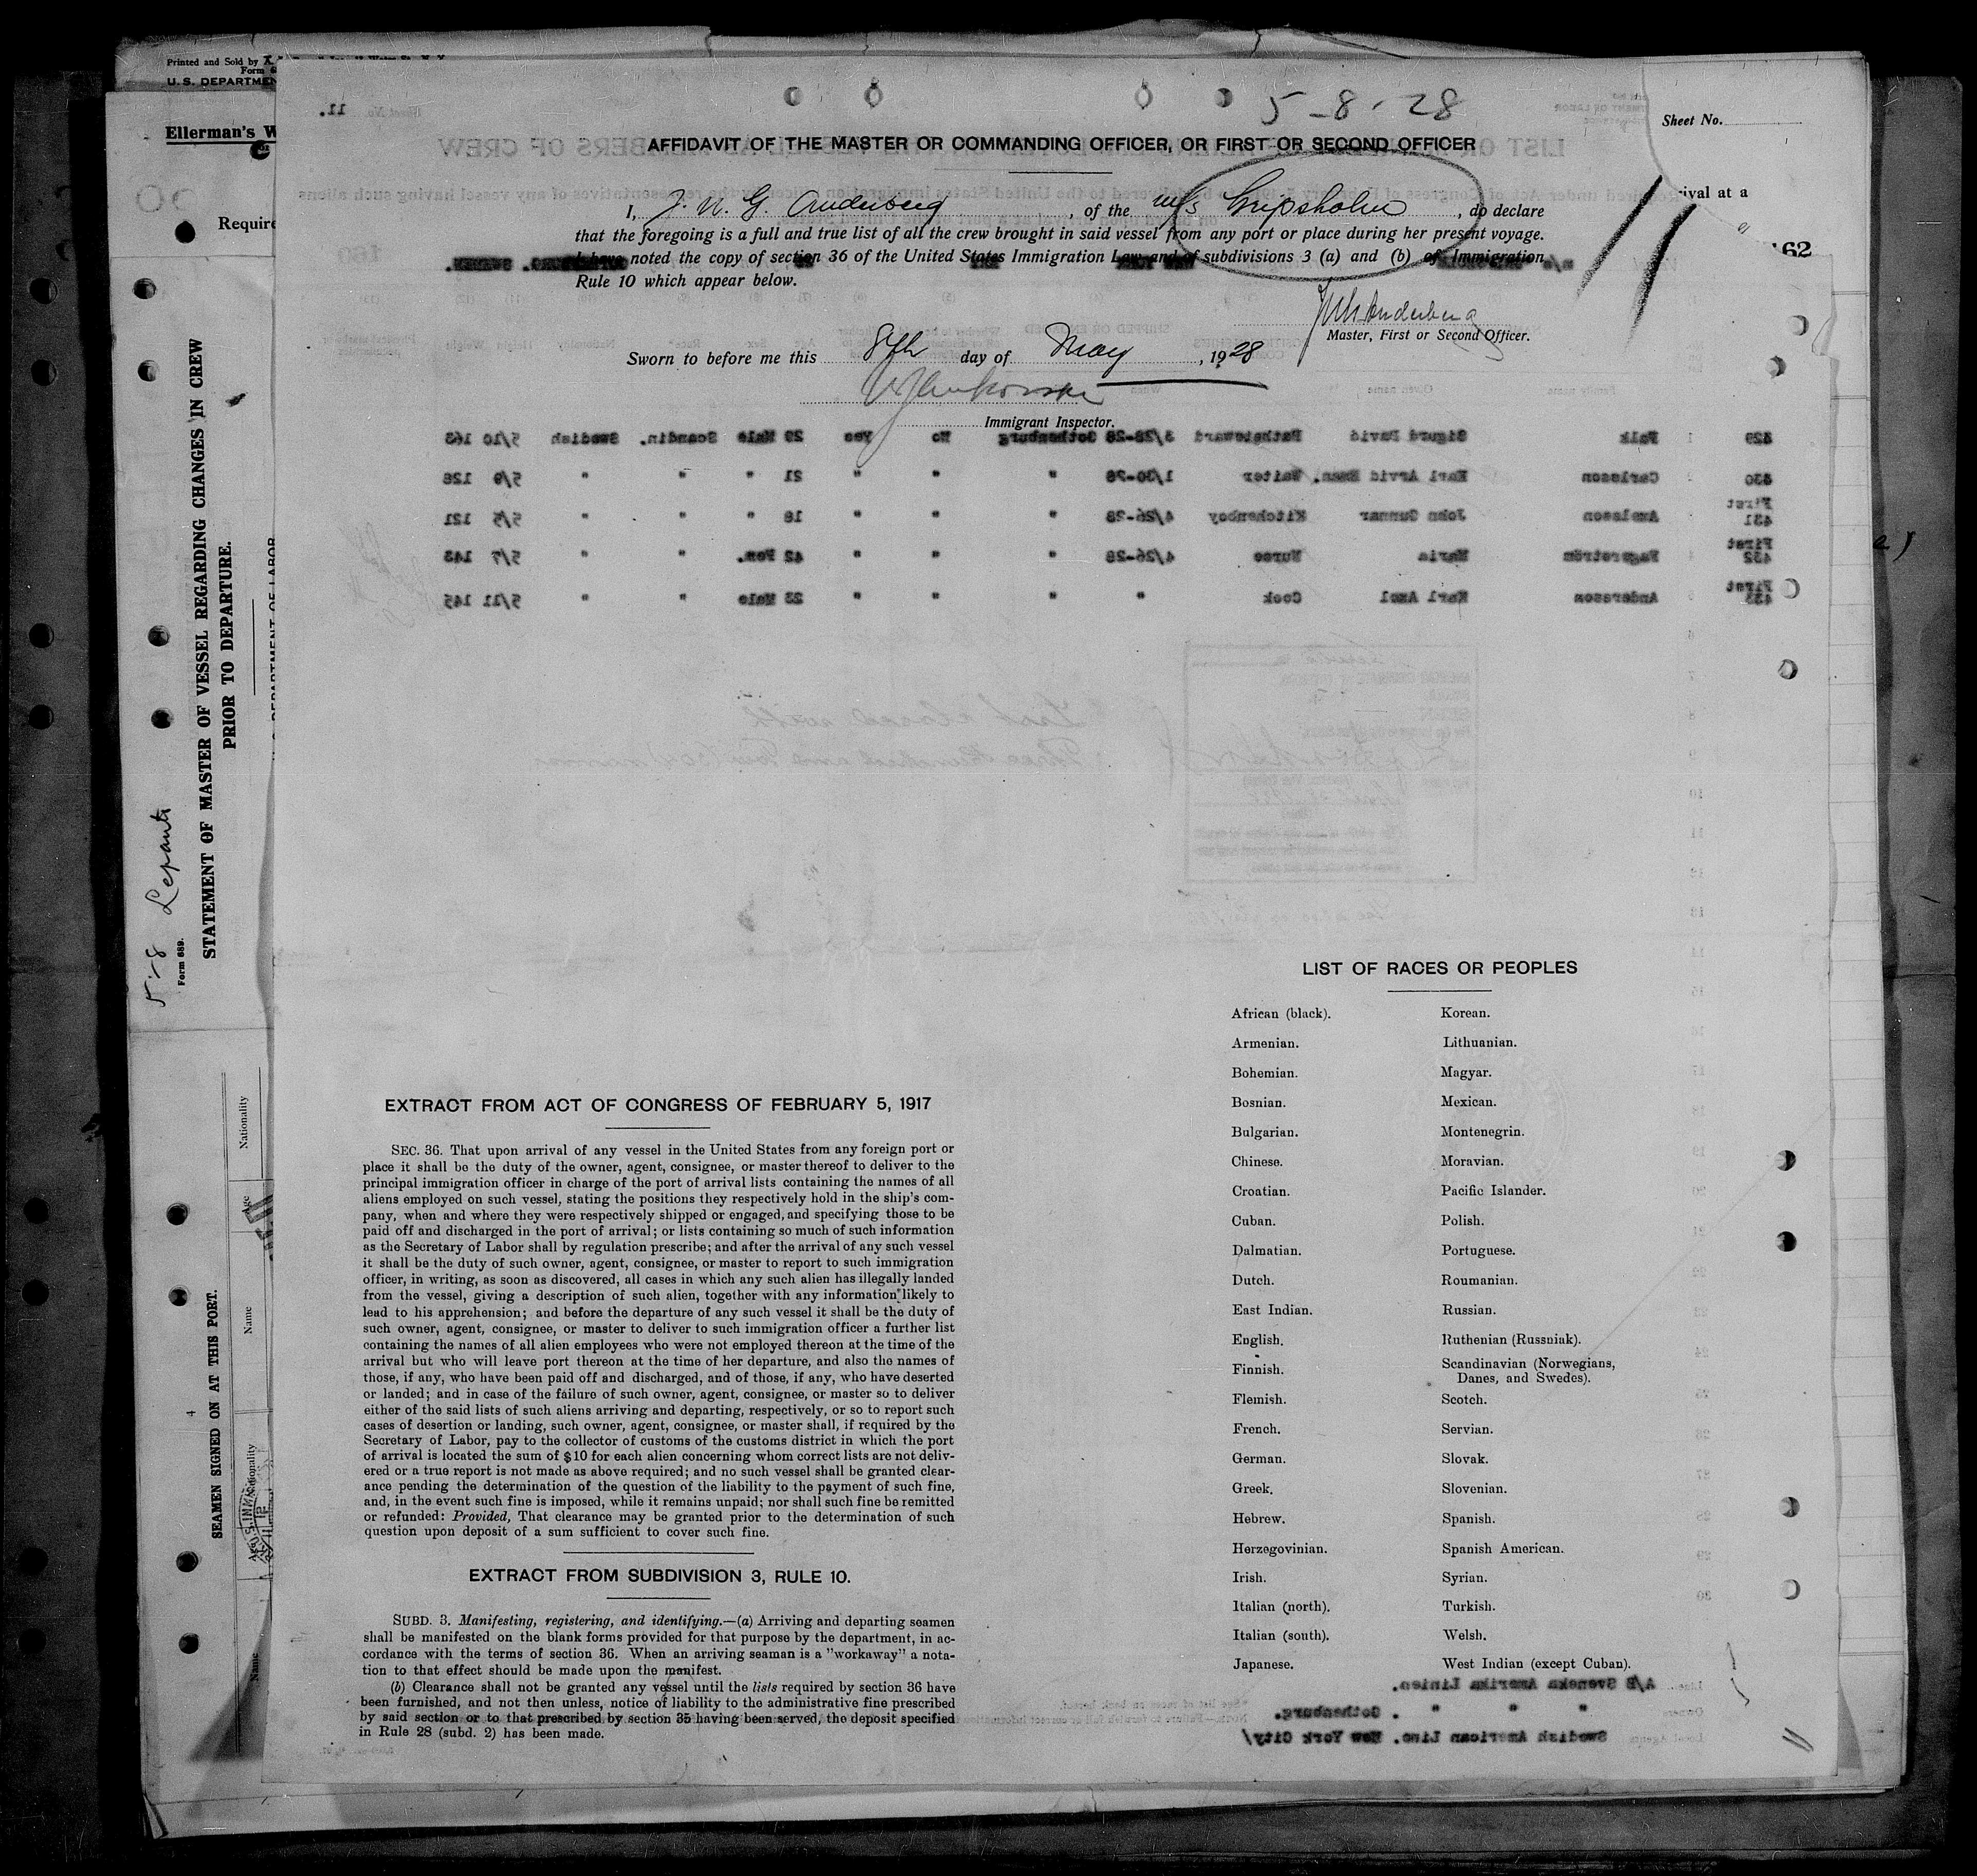 Printed and Sold by
Form
U. S. DEPARTMEN
Ellerman's W
Require
STATEMENT OF MASTER OF VESSEL REGARDING CHANGES IN CREW
PRIOR TO DEPARTURE.
Form 689.
5-8 Lepanto
SEAMEN SIGNED ON AT THIS PORT.
Nationality
Age
Name
Nationality
Age
Name
5-8-28
Sheet No.
11.
AFFIDAVIT OF THE MASTER OR COMMANDING OFFICER, OR FIRST OR SECOND OFFICER
rival at a
I, J. W. G. Anderberg, of the m/s Gripsholm, do declare
that the foregoing is a full and true list of all the crew brought in said vessel from any port or place during her present voyage.
I have noted the copy of section 36 of the United States Immigration Law and of subdivisions 3 (a) and (b) of Immigration
Rule 10 which appear below.
11
62
Master, First or Second Officer.
Sworn to before me this 8th day of May, 1928
Immigrant Inspector.
429 Falk Sigurd David Bathsteward 3/28-28 Gothenburg No Yes 29 Male Scandin. Swedish 5/10 163
430 Carlsson Karl Arvid Eman. Waiter 1/30-28 " " " 21 " " " 5/9 128
First
431 Axelsson John Gunnar Kitchenboy 4/26-28 " " " 18 " " " 5/5 121
First
432 Fagerström Maria Nurse 4/26-28 " " " 42 Fem. " " 5/7 143
First
433 Andersson Karl Axel Cook " " " " 23 Male " " 5/11 145
LIST OF RACES OR PEOPLES
African (black).
Armenian.
Bohemian.
Bosnian.
Bulgarian.
Chinese.
Croatian.
Cuban.
Dalmatian.
Dutch.
East Indian.
English.
Finnish.
Flemish.
French.
German.
Greek.
Hebrew.
Herzegovinian.
Irish.
Italian (north).
Italian (south).
Japanese.
Korean.
Lithuanian.
Magyar.
Mexican.
Montenegrin.
Moravian.
Pacific Islander.
Polish.
Portuguese.
Roumanian.
Russian.
Ruthenian (Russniak).
Scandinavian (Norwegians,
Danes, and Swedes).
Scotch.
Servian.
Slovak.
Slovenian.
Spanish.
Spanish American.
Syrian.
Turkish.
Welsh.
West Indian (except Cuban).
EXTRACT FROM ACT OF CONGRESS OF FEBRUARY 5, 1917
SEC. 36. That upon arrival of any vessel in the United States from any foreign port or
place it shall be the duty of the owner, agent, consignee, or master thereof to deliver to the
principal immigration officer in charge of the port of arrival lists containing the names of all
aliens employed on such vessel, stating the positions they respectively hold in the ship's com-
pany, when and where they were respectively shipped or engaged, and specifying those to be
paid off and discharged in the port of arrival; or lists containing so much of such information
as the Secretary of Labor shall by regulation prescribe; and after the arrival of any such vessel
it shall be the duty of such owner, agent, consignee, or master to report to such immigration
officer, in writing, as soon as discovered, all cases in which any such alien has illegally landed
from the vessel, giving a description of such alien, together with any information likely to
lead to his apprehension; and before the departure of any such vessel it shall be the duty of
such owner, agent, consignee, or master to deliver to such immigration officer a further list
containing the names of all alien employees who were not employed thereon at the time of the
arrival but who will leave port thereon at the time of her departure, and also the names of
those, if any, who have been paid off and discharged, and of those, if any, who have deserted
or landed; and in case of the failure of such owner, agent, consignee, or master so to deliver
either of the said lists of such aliens arriving and departing, respectively, or so to report such
cases of desertion or landing, such owner, agent, consignee, or master shall, if required by the
Secretary of Labor, pay to the collector of customs of the customs district in which the port
of arrival is located the sum of $10 for each alien concerning whom correct lists are not deliv-
ered or a true report is not made as above required; and no such vessel shall be granted clear-
ance pending the determination of the question of the liability to the payment of such fine,
and, in the event such fine is imposed, while it remains unpaid; nor shall such fine be remitted
or refunded: Provided, That clearance may be granted prior to the determination of such
question upon deposit of a sum sufficient to cover such fine.
EXTRACT FROM SUBDIVISION 3, RULE 10.
SUBD. 3. Manifesting, registering, and identifying.—(a) Arriving and departing seamen
shall be manifested on the blank forms provided for that purpose by the department, in ac-
cordance with the terms of section 36. When an arriving seaman is a "workaway" a nota-
tion to that effect should be made upon the manifest.
(b) Clearance shall not be granted any vessel until the lists required by section 36 have
been furnished, and not then unless, notice of liability to the administrative fine prescribed
by said section or to that prescribed by section 35 having been served, the deposit specified
in Rule 28 (subd. 2) has been made.
A/B Svenska Amerika Linien.
" " " . Gothenburg.
Swedish American Line. New York City/